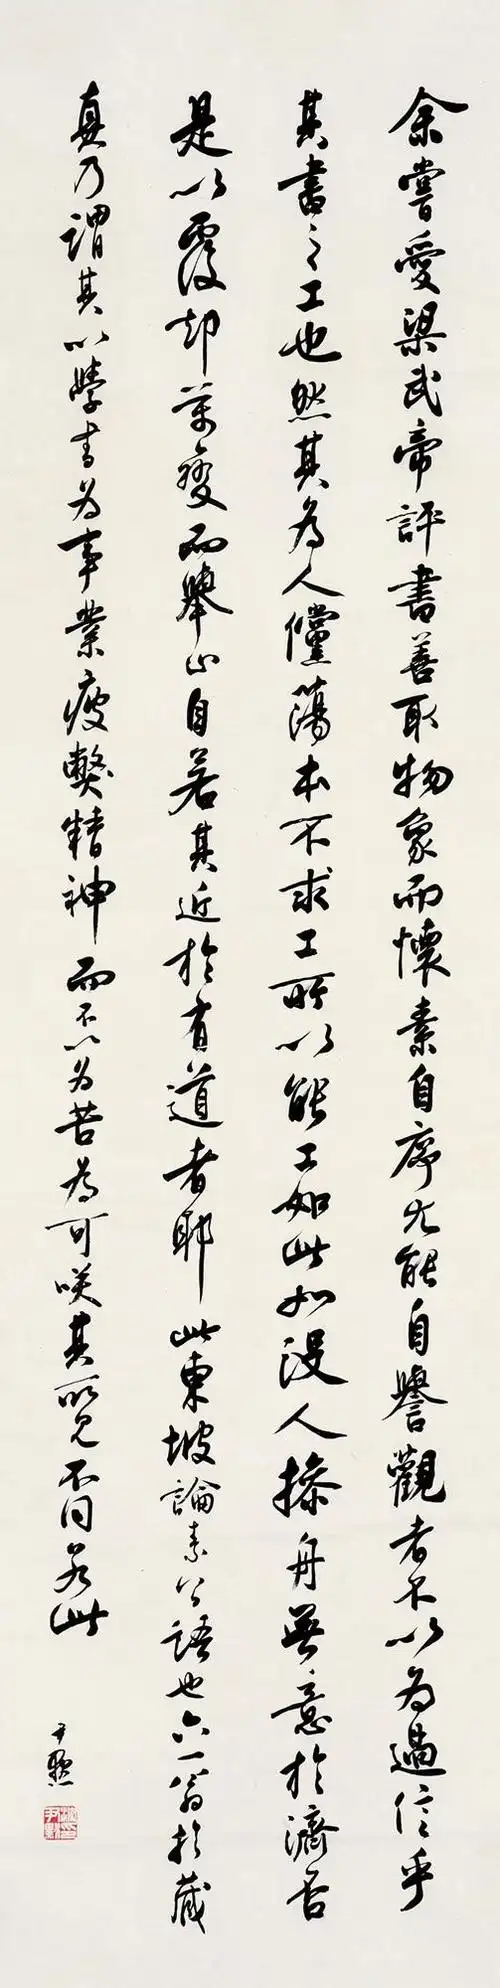 余嘗愛梁武帝評書善取物象而懷素自序尤能自譽觀者不以為過信乎
其書之工也然其為人儻蕩本不求工所以能工如此如没人操舟無意於濟否
是以覆却萬變而舉止自若其近於有道者耶此東坡論素公語也六一翁於藏
真乃謂其以學書為事業疲弊精神而不以為苦為可咲其所見不同若此
尹默